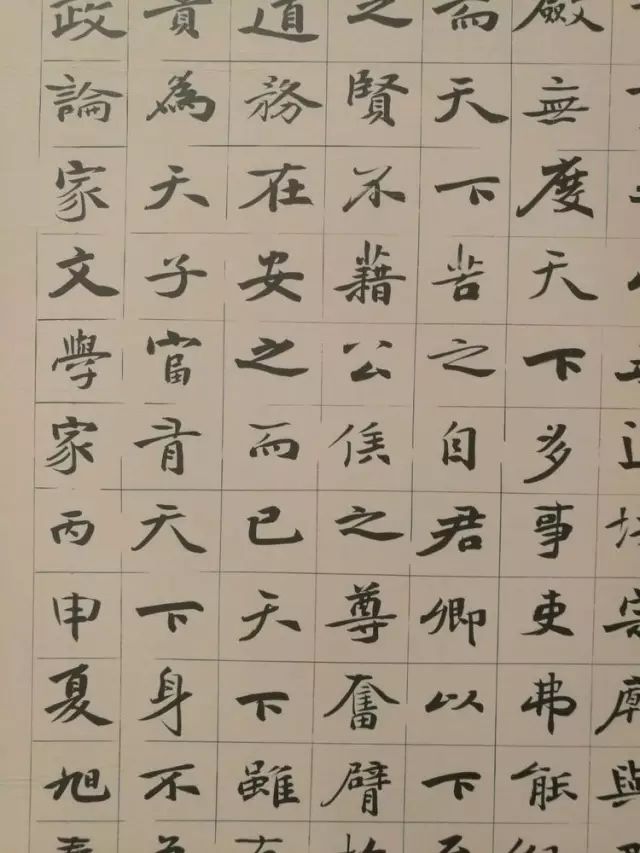 斂無度天下多事吏弗能
而天下苦之自君卿以下
之賢不藉公侯之尊奮臂
道務在安之而已天下雖
貴為天子富有天下身不
政論家文學家丙申夏旭